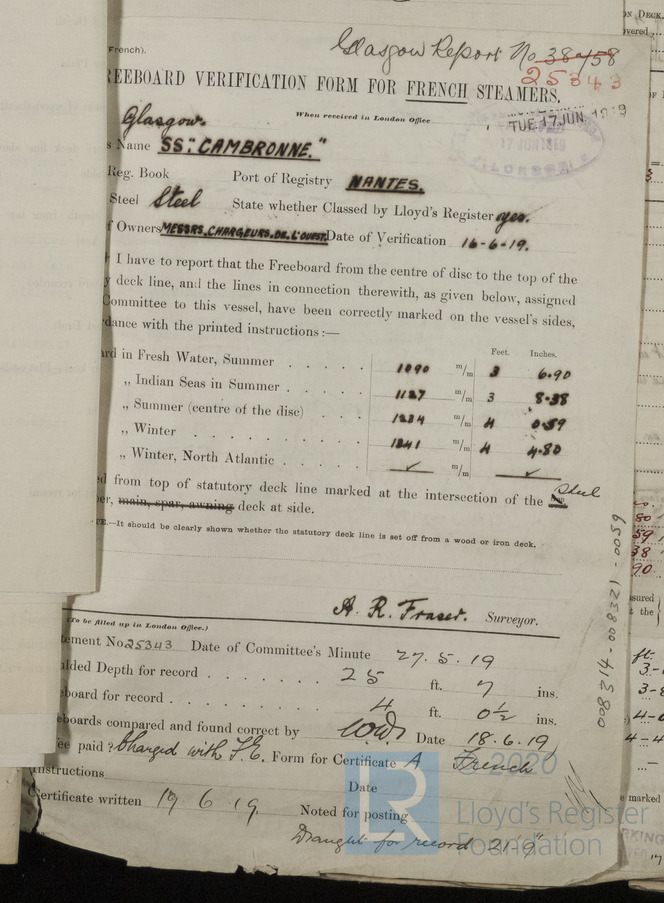 French).
Glasgow Report No 38458
25343
REEBOARD VERIFICATION FORM FOR FRENCH STEAMERS.
When received in London Office
TUE 17 JUN 1919
17 JUN 1919
Glasgow.
s Name SS: "CAMBRONNE."
Reg. Book Port of Registry NANTES.
Steel Steel State whether Classed by Lloyd's Register yes.
f Owners MESSRS. CHARGEURS. DE. L'OUEST. Date of Verification 16-6-19.
I have to report that the Freeboard from the centre of disc to the top of the
y deck line, and the lines in connection therewith, as given below, assigned
Committee to this vessel, have been correctly marked on the vessel's sides,
dance with the printed instructions:—
Feet. Inches.
ard in Fresh Water, Summer . . . . . 1090 m/m 3 6.90
„ Indian Seas in Summer . . . . 1127 m/m 3 8.38
„ Summer (centre of the disc) . . . 1234 m/m 4 0.59
„ Winter . . . . . . . . . 1341 m/m 4 4.80
„ Winter, North Atlantic . . . . . ✓ m/m ✓
ed from top of statutory deck line marked at the intersection of the Steel
er, main, spar, awning deck at side.
TE.—It should be clearly shown whether the statutory deck line is set off from a wood or iron deck.
A. R. Fraser. Surveyor.
(To be filled up in London Office.)
tement No 25343 Date of Committee's Minute 27.5.19
ulded Depth for record . . . . . . . 25 ft. 7 ins.
board for record . . . . . . . . . 4 ft. 0½ ins.
eboards compared and found correct by Date 18.6.19
ee paid? Charged with F.E. Form for Certificate A French
Instructions Date
Certificate written 19 6 19. Noted for posting
Draught for record 21'9"
008314-008321-0059
© 2020
LR
Lloyd's Register
Foundation